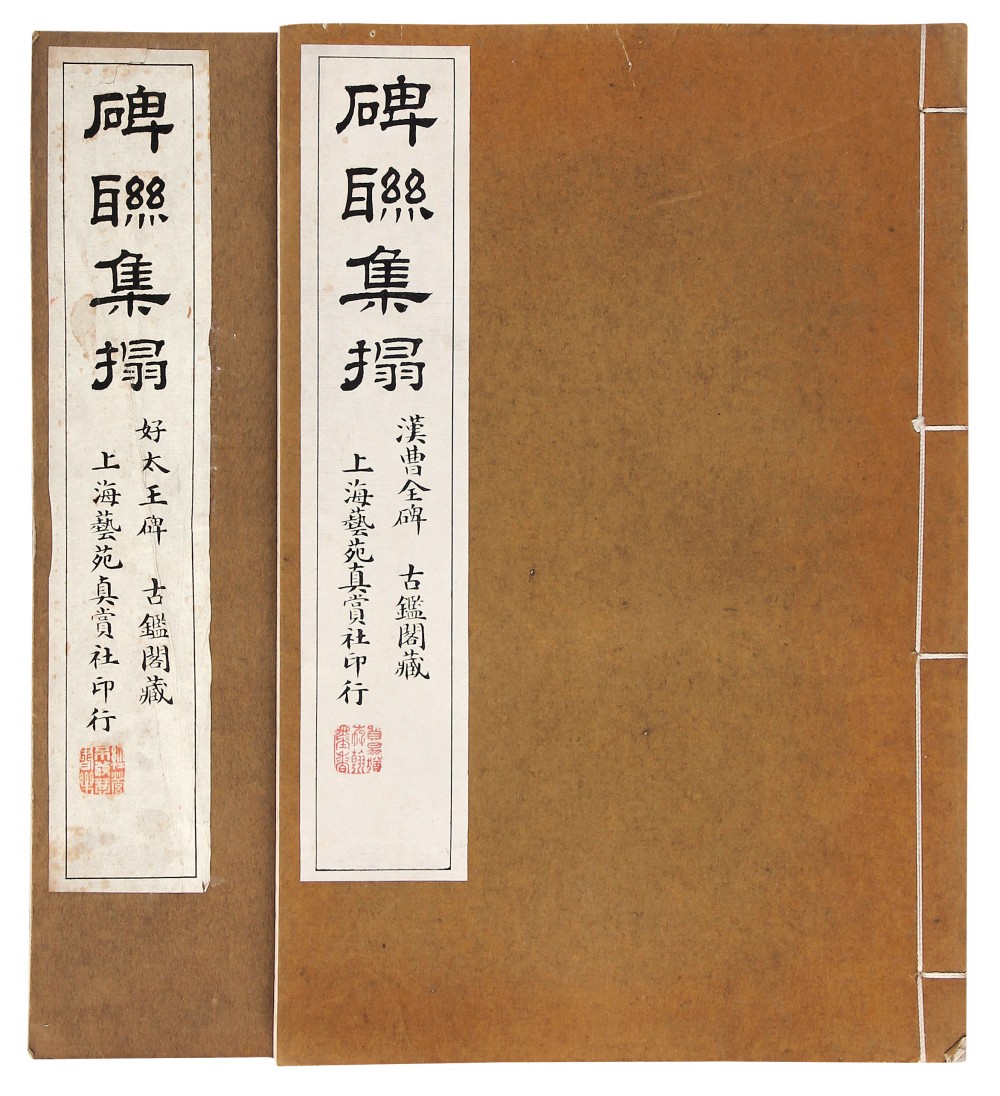 碑聯集搨
漢曹全碑 古鑑閣藏
上海藝苑真賞社印行
碑聯集搨
好太王碑 古鑑閣藏
上海藝苑真賞社印行